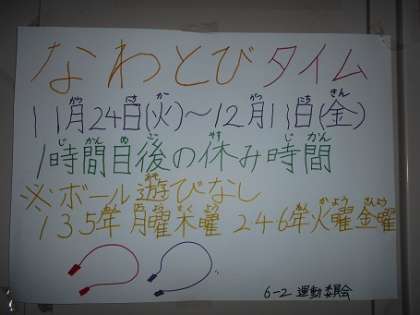 なわとびタイム
11月24日(火)〜12月11日(金)
1時間目後の休み時間
※ボール遊びなし
135年月曜木曜 246年火曜金曜
6-2 運動委員会